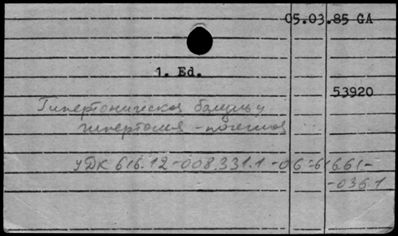 05.03.85 GA
1. Ed.
53920
Гипертоническая болезнь у
гипертония - почечная
УДК 616.12-008.331.1-06:616.61-
-036.1